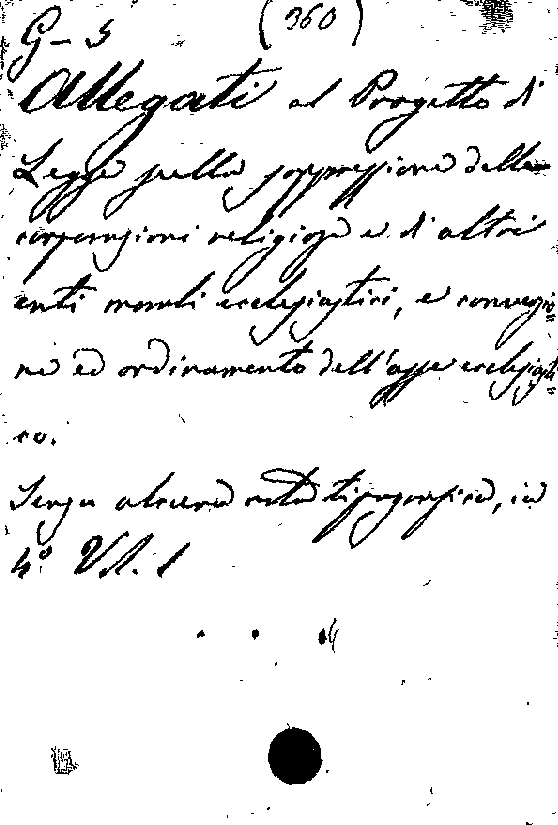 G-5 (360)
Allegati al Progetto di
Legge sulla soppressione delle
corporazioni religiose e di altri
enti morali ecclesiastici, e conversio=
ne ed ordinamento dell'asse ecclesiasti=
co.
Senza alcuna nota tipografica, in
4º Vol. 1